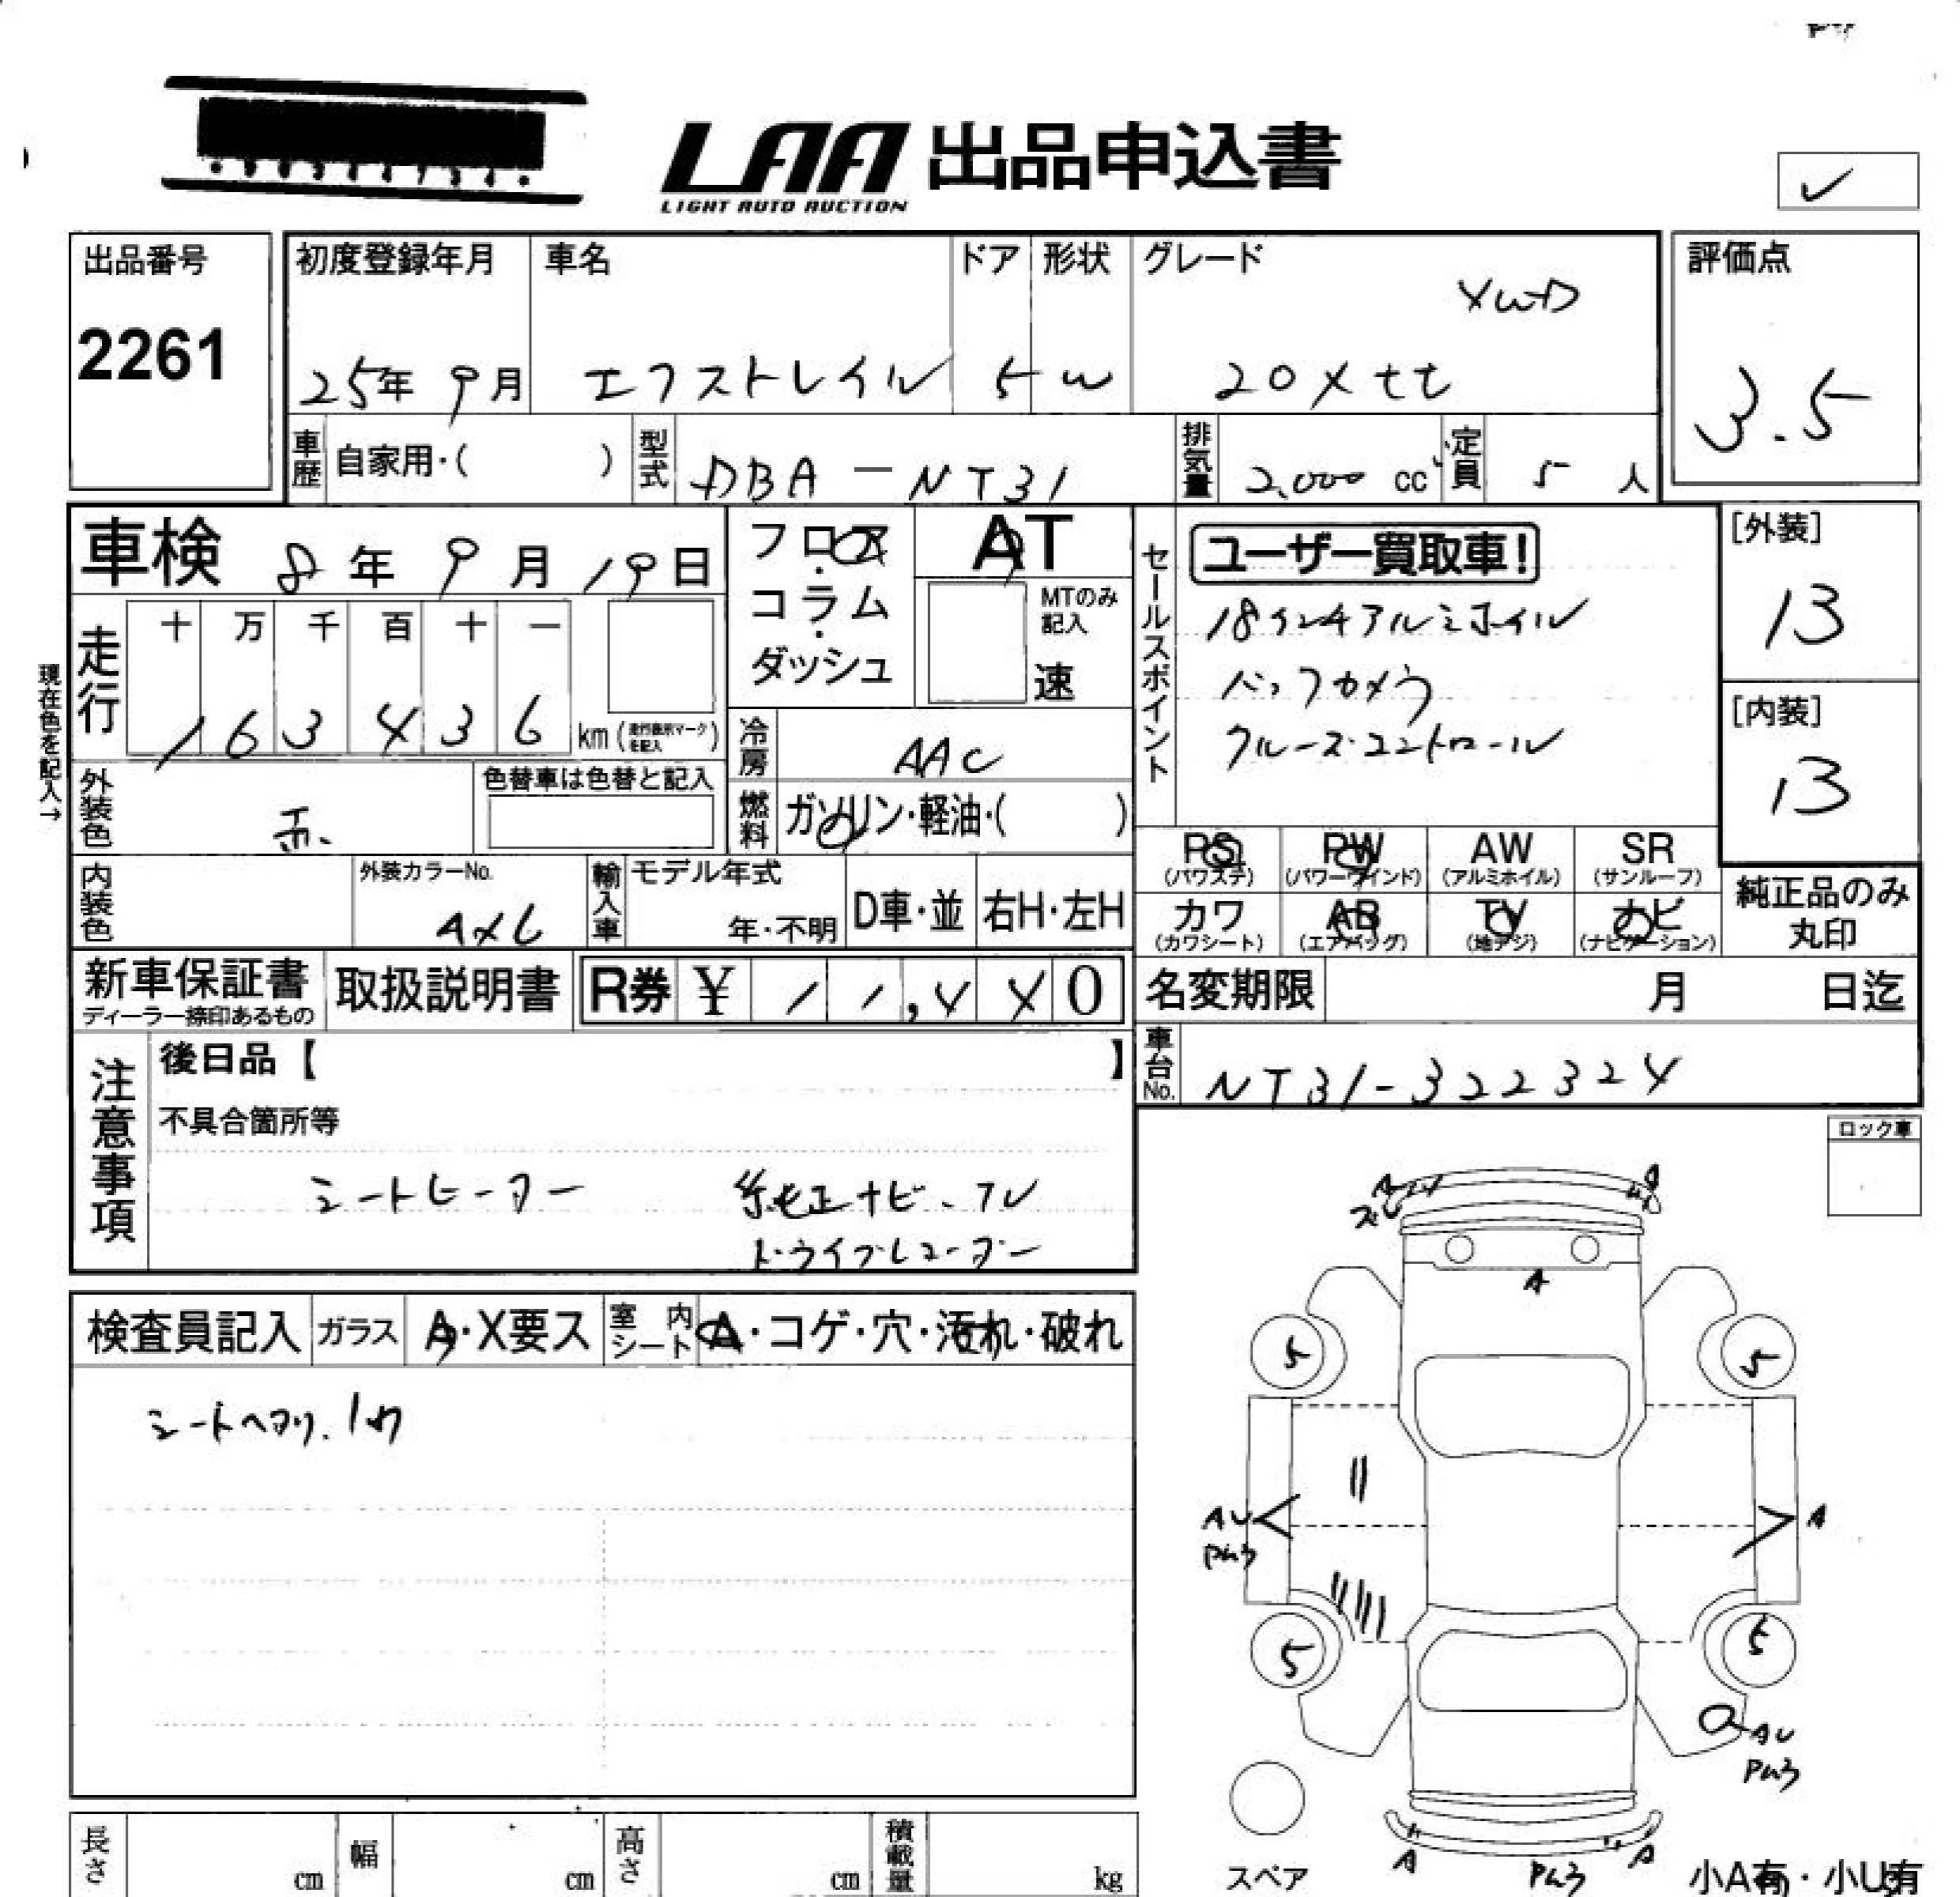 LAA 出品申込書
LIGHT AUTO AUCTION
出品番号
2261
初度登録年月
25年 9月
車名
エクストレイル
ドア
5
形状
W
グレード
4WD
20Xtt
評価点
3.5
車歴
自家用・( )
型式
DBA-NT31
排気量
2,000 cc
定員
5 人
車検 8年 9月 19日
フロア・コラム・ダッシュ
AT
MTのみ記入
速
セールスポイント
ユーザー買取車!
18インチアルミホイル
バックカメラ
クルーズコントロール
[外装]
13
[内装]
13
現在色を記入→
走行
十 万 千 百 十 一
1 6 3 4 3 6 km
冷房
AAC
燃料
ガソリン・軽油・( )
外装色
赤
色替車は色替と記入
内装色
外装カラーNo.
A×6
輸入車
モデル年式
年・不明
D車・並
右H・左H
PS (パワステ)
PW (パワーウインド)
AW (アルミホイル)
SR (サンルーフ)
カワ (カワシート)
AB (エアバッグ)
TV (地デジ)
ナビ (ナビゲーション)
純正品のみ
丸印
新車保証書
ディーラー捺印あるもの
取扱説明書
R券 ¥ 11,440
名変期限 月 日迄
車台No.
NT31-322324
注意事項
後日品【 】
不具合箇所等
シートヒーター 純正ナビ・TV
ドライブレコーダー
ロック車
検査員記入
ガラス A・X要ス
室内シート A・コゲ・穴・汚れ・破れ
シートヘタリ.
A
A
A
5
5
AU
A
5
5
AU
スペア
A
A
小A有・小U有
長さ cm
幅 cm
高さ cm
積載量 kg